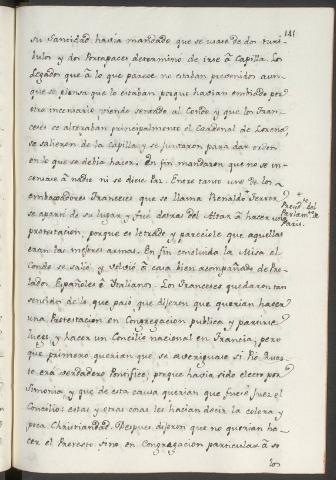 141
su Santidad havia mandado que se usase de dos turi-
bulos y dos Portapaces determino de irse à Capilla. Los
Legados que à lo que parece no estaban prevenidos aun-
que se piensa que lo estaban porque havian embiado por
otro incensario viendo sentado al Conde y que los Fran-
ceses se alteraban principalmente el Cardenal de Lorena,
se salieron de la Capilla y se juntaron para dar orden
en lo que se debia hacer. En fin mandaron que no se in-
censase à nadie ni se diese Paz. Entre tanto uno de los
embaxadores Franceses que se llama Renaldo Ferrer
Presid.te del
Parlam.to de
Paris.
se apartò de su lugar y fué detras del Altar à hacer una
protestacion, porque es letrado y pareciole que aquellas
eran las mejores armas. En fin concluida la Misa el
Conde se saliò y volviò à casa bien acompañado de Pre-
lados Españoles è Italianos. Los Franceses quedaron tan
sentidos de lo que pasó que dijeron que querian hacer
una Protestacion en Congregacion publica y partirse
luego, y hacer un Concilio nacional en Francia, pero
que primero querian que se averiguase si Pio Quar-
to era verdadero Pontifice; porque havia sido electo por
Simonia y que de esta causa querian que fuese Juez el
Concilio: estas y otras cosas les hacian decir la colera y
poca Christiandad. Despues dijeron que no querian ha-
cer el Protesto sino en Congregacion particular à so
los